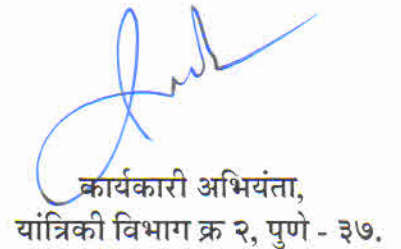 कार्यकारी अभियंता,
यांत्रिकी विभाग क्र २, पुणे - ३७.